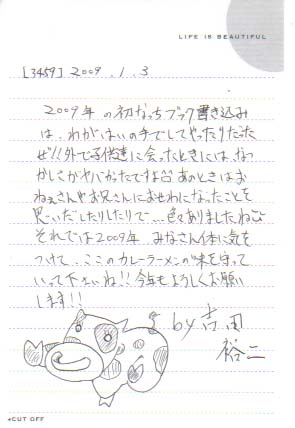 LIFE IS BEAUTIFUL
[3459] 2009.1.3
2009年の初なっちブック書き込み
は、わがはいの手でしてやったりだった
ぜ!!外で子供達に会ったときには、なつ
かしさがやばかったですね あのときはお
ねぇさんやお兄さんにおせわになったことを
思いだしたりしたりで...色々ありましたねぇ
それでは2009年 みなさん体に気を
つけて、ここのカレーラーメンの味を守って
いって下さいね!!今年もよろしくお願い
します!!
by吉田
裕二
CUT OFF